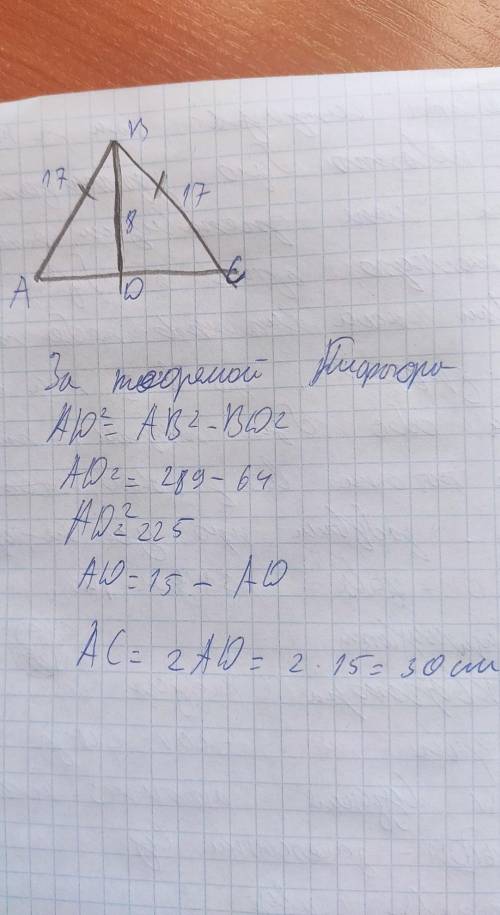 B
17
17
8
A
D
C
За теоремой Пифагора
AD² = AB² - BD²
AD² = 289 - 64
AD² = 225
AD = 15 - AD
AC = 2AD = 2 · 15 = 30 см